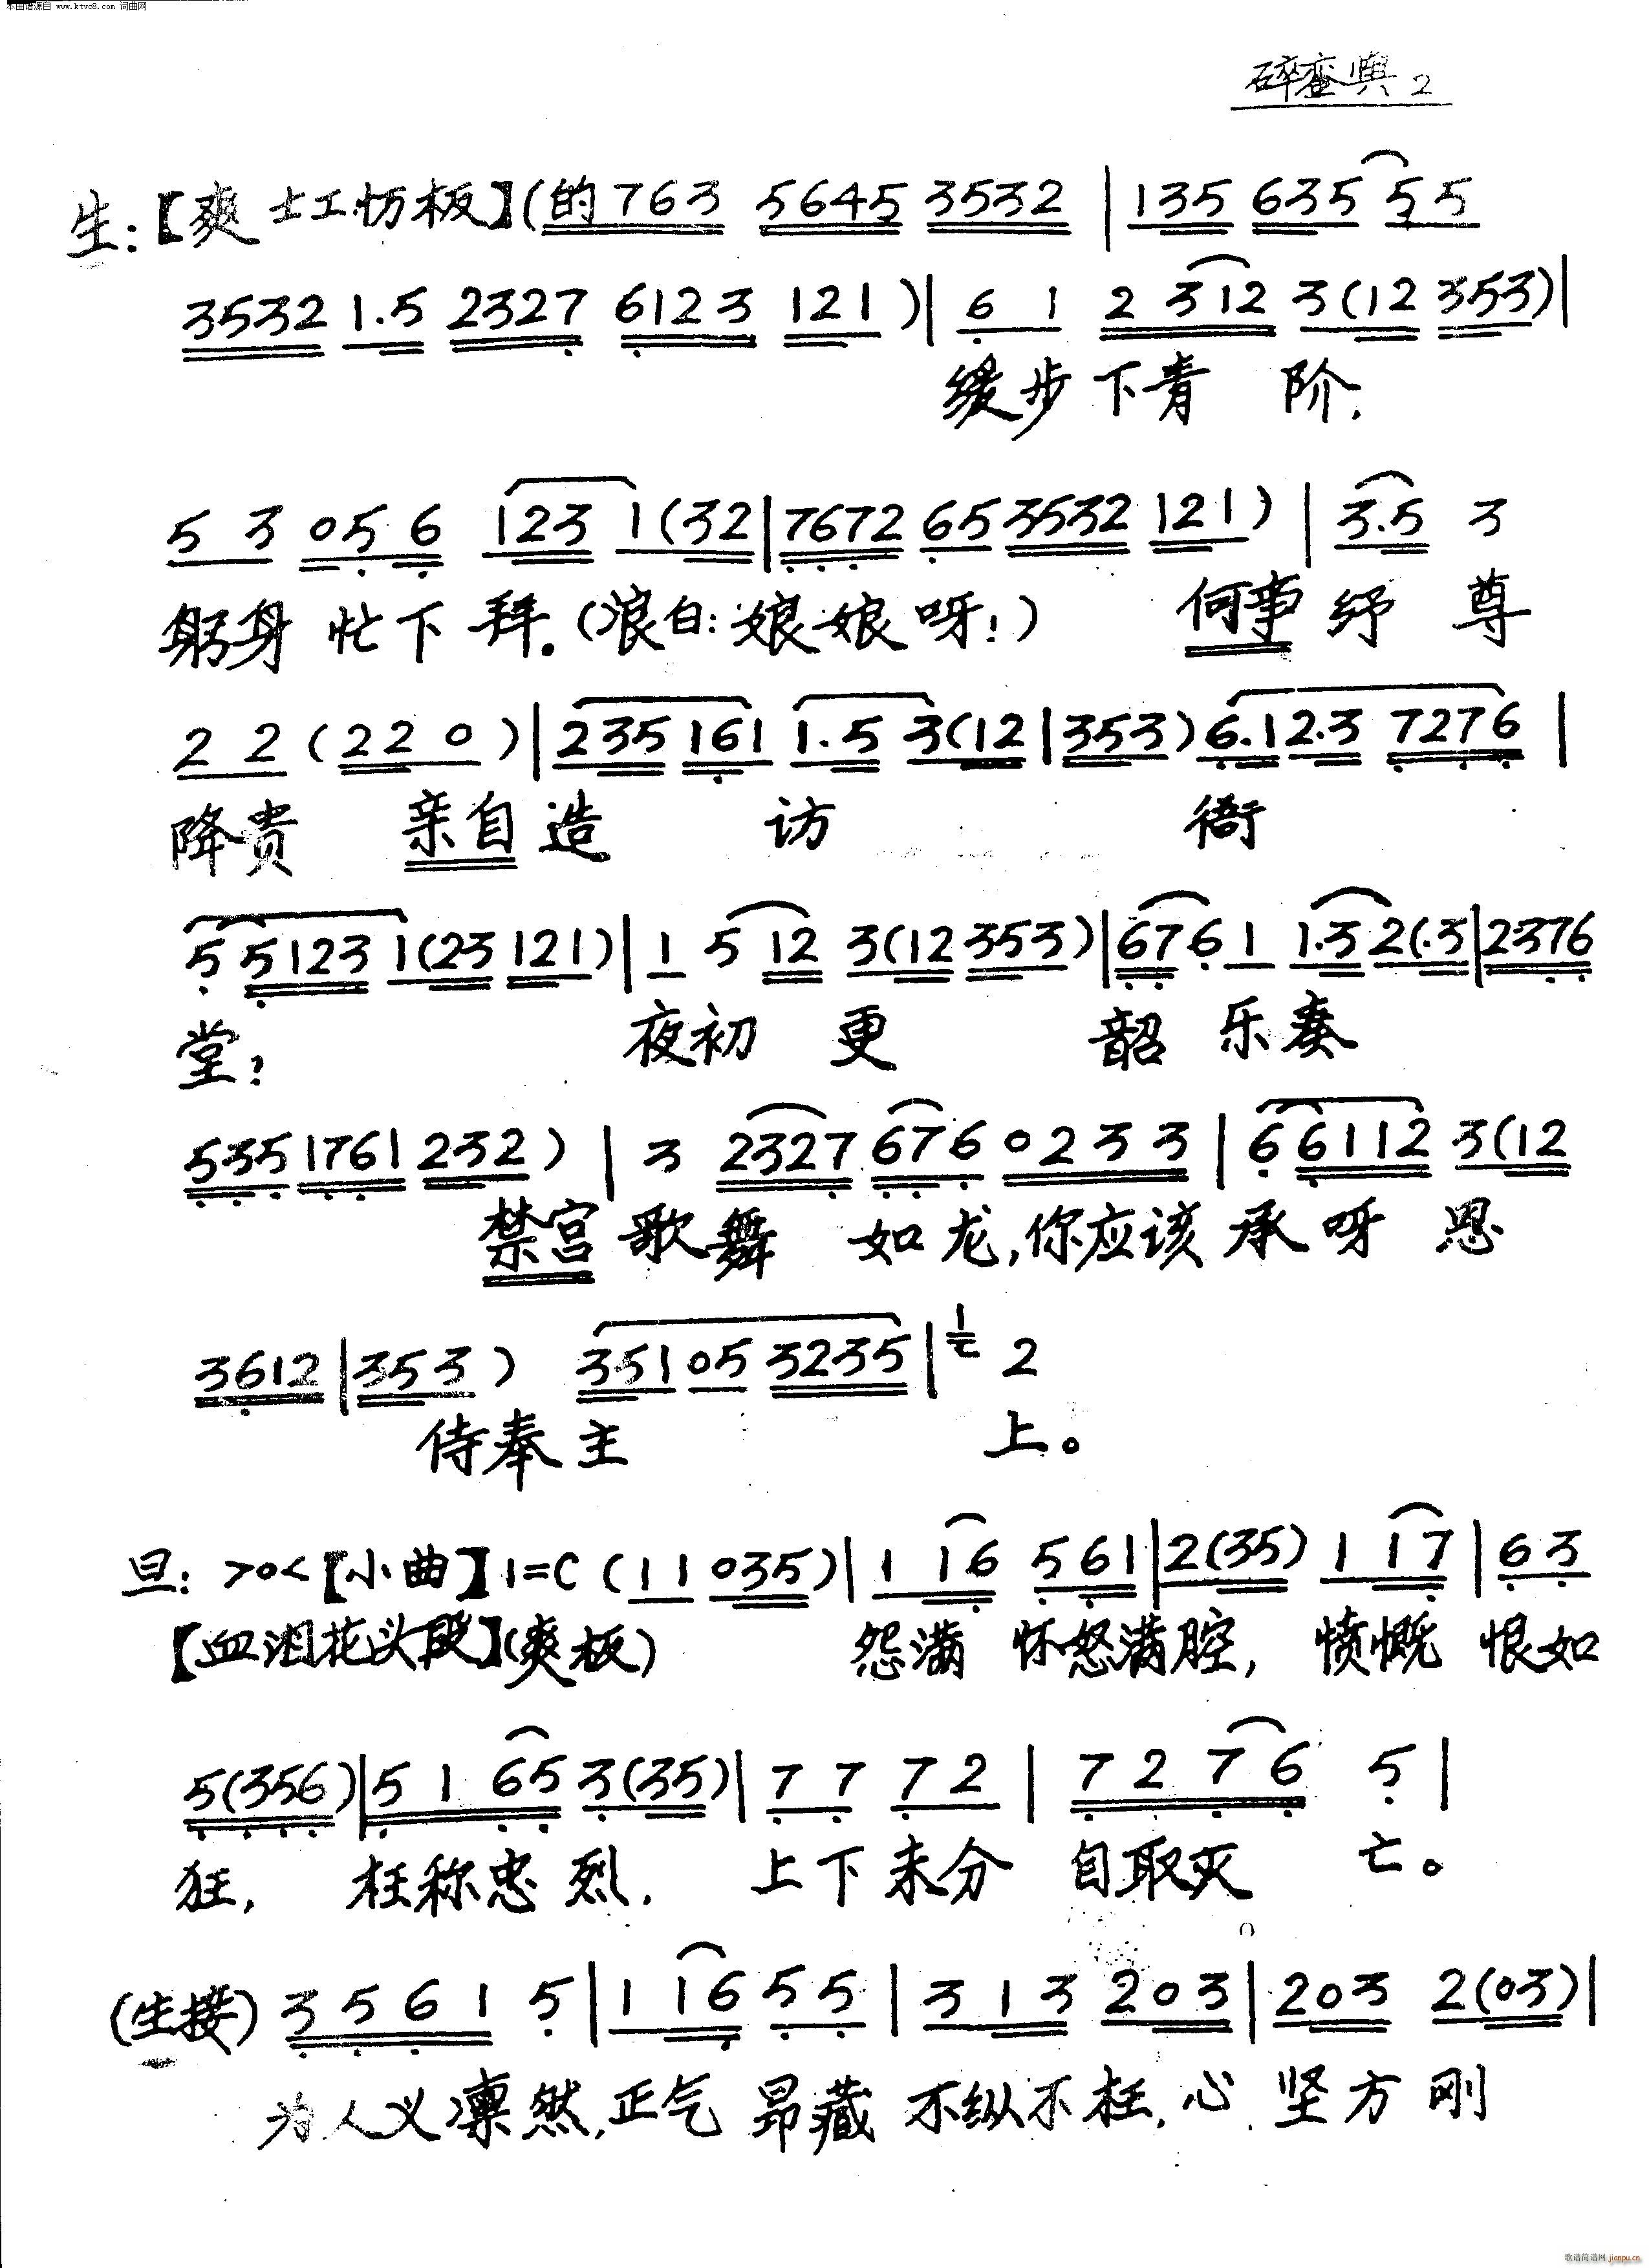 本曲谱源自 www.ktvc8.com 词曲网
碎銮舆 2
生:【爽士工切板】(的763 5645 3532 | 135 635 55
3532 1.5 2327 6123 121 )| 6 1 2 312 3(12 353)|
缓步下青 阶,
5 3 056 123 1(32|7672 65 3532 121) | 3.5 3
躬身 忙下 拜。(浪白:娘娘呀!) 何事 纡 尊
2 2 (22 0 )|235 161 1.5 3(12|353) 6.12.3 7276 |
降贵 亲自造 访 衙
5 51231(23 121)|1 5 12 3(12 353)|6761 1.3 2(.3|2376
堂? 夜初 更 韶 乐奏
535 1761 232 ) | 3 2327 676 0233 | 66112 3(12
禁宫 歌舞 如龙,你应该 承 呀 恩
3612 |353 ) 35105 3235 | 2
侍奉主 上。
旦: >0< 【小曲】1=C (11 035)|1 16 561|2(35) 1 17 |63
【血泪花头段】(爽板) 怨满 怀怒满腔, 愤慨 恨如
5(356)|51 65 3(35)|7 7 7 2 | 7 2 7 6 5 |
狂, 枉称忠 烈, 上下未分 自取灭 亡。
(生接) 3561 5|1 16 55 | 313 203|203 2(03)|
为人义凛然,正气 昂藏 不纵不枉,心 坚方刚
歌谱简谱网 jianpu.cn